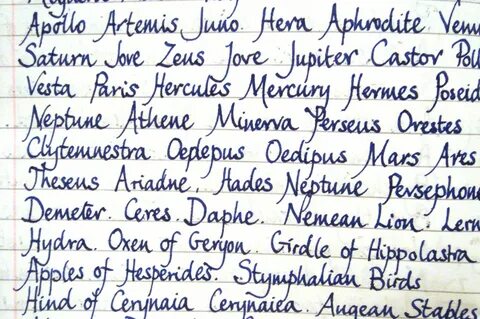 Apollo Artemis Juno. Hera Aphrodite Venu
Saturn Jove Zeus Jove Jupiter Castor Poll
Vesta Paris Hercules Mercury Hermes Poseid
Neptune Athene Minerva Perseus Orestes
Clytemnestra Oedepus Oedipus Mars Ares
Theseus Ariadne. Hades Neptune Persephone
Demeter. Ceres. Daphe. Nemean Lion. Lern
Hydra. Oxen of Geryon. Girdle of Hippolastra
Apples of Hesperides. Stymphalian Birds
Hind of Cerynaia Cerynaiea. Augean Stables